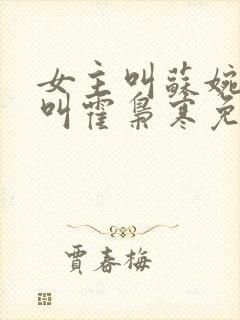 女主叫蘇婉
叫霍梟寒免
賈春梅